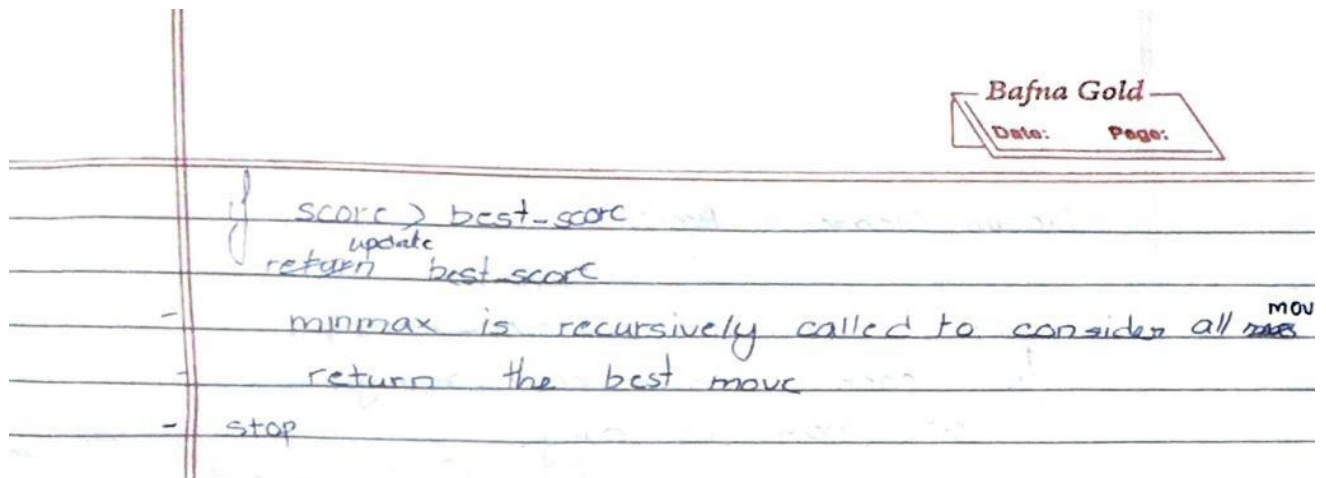 Bafna Gold
Date: Page:
if score > best_score
update
return best_score
- minmax is recursively called to consider all mov
- return the best move
- stop